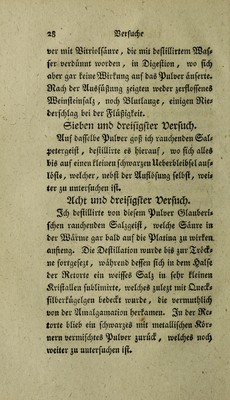 28 Versuche
ver mit Vitriolsäure, die mit destillirtem Was-
ser verdünnt worden, in Digestion, wo sich
aber gar keine Wirkung auf das Pulver äuserte.
Nach der Aussüßung zeigten weder zerflossenes
Weinsteinsalz, noch Blutlauge, einigen Nie-
derschlag bei der Flüßigkeit.
Sieben und dreisigster Versuch.
Auf dasselbe Pulver goß ich rauchenden Sal-
petergeist, destillirte es hierauf, wo sich alles
bis auf einen kleinen schwarzen Ueberbleibsel auf-
lößte, welcher, nebst der Auflösung selbst, wei-
ter zu untersuchen ist.
Acht und dreisigster Versuch.
Ich destillirte von diesem Pulver Glauberi-
schen rauchenden Salzgeist, welche Säure in
der Wärme gar bald auf die Platina zu wirken
anfieng. Die Destillation wurde bis zur Tröck-
ne fortgesezt, während dessen sich in dem Halse
der Retorte ein weisses Salz in sehr kleinen
Kristallen sublimirte, welches zulezt mit Queck-
silberkügelgen bedeckt wurde, die vermuthlich
von der Amalgamation herkamen. In der Re-
torte blieb ein schwarzes mit metallischen Kör-
nern vermischtes Pulver zurück, welches noch
weiter zu untersuchen ist.